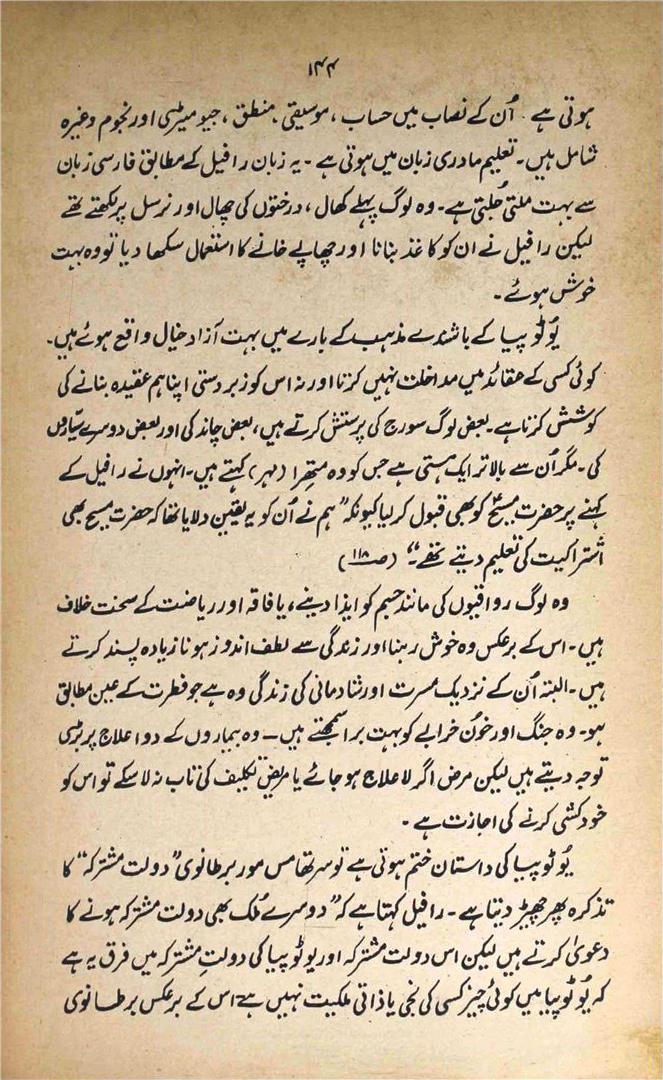 ۱۴۴
ہوتی ہے ۔ اُن کے نصاب میں حساب ، موسیقی ، منطق ، جیومیٹری اور نجوم وغیرہ
شامل ہیں۔ تعلیم مادری زبان میں ہوتی ہے ۔ یہ زبان رافیل کے مطابق فارسی زبان
سے بہت ملتی جُلتی ہے۔ وہ لوگ پہلے کھال ، درختوں کی چھال اور نرسل پر لکھتے تھے
لیکن رافیل نے ان کو کاغذ بنانا اور چھاپے خانے کا استعمال سکھا دیا تو وہ بہت
خوش ہوئے ۔
یُوٹوپیا کے باشندے مذہب کے بارے میں بہت آزاد خیال واقع ہوئے ہیں۔
کوئی کسی کے عقائد میں مداخلت نہیں کرتا اور نہ اس کو زبردستی اپنا ہم عقیدہ بنانے کی
کوشش کرتا ہے۔ بعض لوگ سورج کی پرستش کرتے ہیں ، بعض چاند کی اور بعض دوسرے سیّاروں
کی۔ مگر اُن سے بالاتر ایک ہستی ہے جس کو وہ متھرا (مہر) کہتے ہیں۔ انہوں نے رافیل کے
کہنے پر حضرت مسیحؑ کو بھی قبول کر لیا کیونکہ ”ہم نے اُن کو یہ یقین دلایا تھا کہ حضرت مسیح بھی
اشتراکیت کی تعلیم دیتے تھے۔“ (صـ ۱۱۸)
وہ لوگ رواقیوں کی مانند جسم کو ایذا دینے ، یا فاقہ اور ریاضت کے سخت خلاف
ہیں۔ اس کے برعکس وہ خوش رہنا اور زندگی سے لطف اندوز ہونا زیادہ پسند کرتے
ہیں۔ البتہ اُن کے نزدیک مسرت اور شادمانی کی زندگی وہ ہے جو فطرت کے عین مطابق
ہو۔ وہ جنگ اور خون خرابے کو بہت برا سمجھتے ہیں ۔ وہ بیماروں کے دوا علاج پر بڑی
توجہ دیتے ہیں لیکن مرض اگر لا علاج ہو جائے یا مریض تکلیف کی تاب نہ لا سکے تو اس کو
خودکشی کرنے کی اجازت ہے ۔
یُوٹوپیا کی داستان ختم ہوتی ہے تو سر تھامس مور برطانوی ”دولت مشترکہ“ کا
تذکرہ پھر چھیڑ دیتا ہے ۔ رافیل کہتا ہے کہ ”دوسرے مُلک بھی دولت مشترکہ ہونے کا
دعویٰ کرتے ہیں لیکن اس دولت مشترکہ اور یوٹوپیا کی دولتِ مشترکہ میں فرق یہ ہے
کہ یُوٹوپیا میں کوئی چیز کسی کی نجی یا ذاتی ملکیت نہیں ہے۔ اس کے برعکس برطانوی